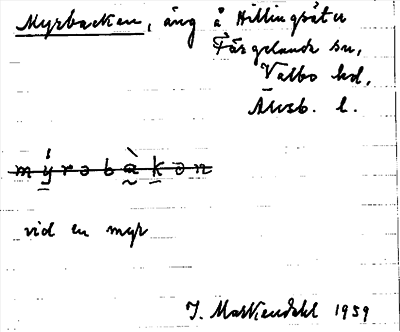 Myrbacken, äng å Hillingsäter
Färgelanda sn,
Valbo hd,
Älvsb. l.
mýrəbàkən
vid en myr
J. 1959